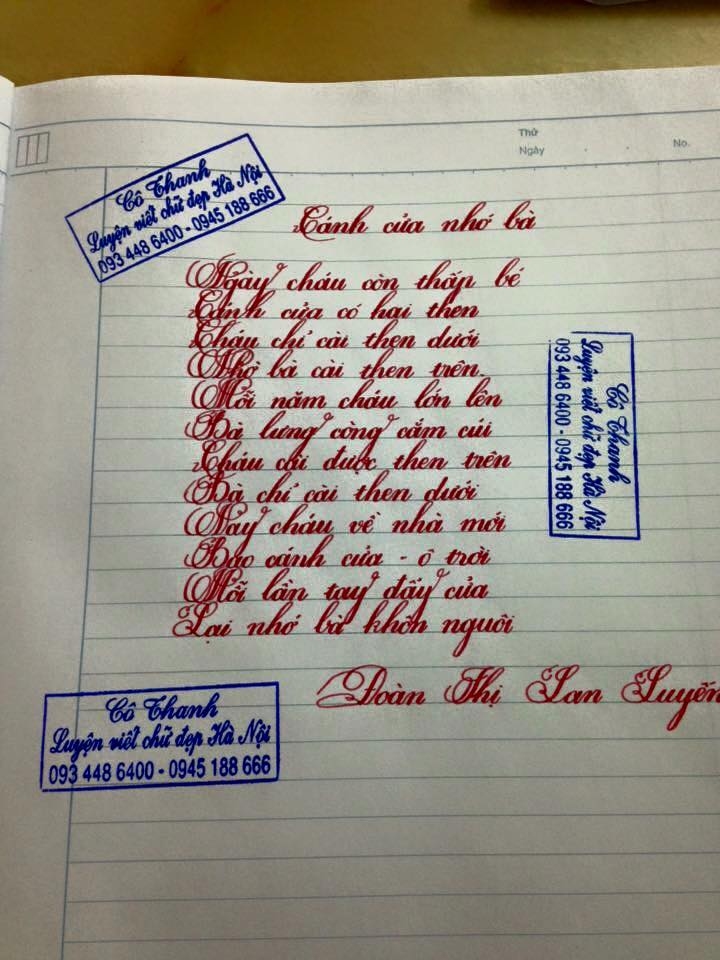 Thứ
Ngày
No.
Cô Thanh
Luyện viết chữ đẹp Hà Nội
093 448 6400 - 0945 188 666
Cánh cửa nhớ bà
Ngày cháu còn thấp bé
Cánh cửa có hai then
Cháu chỉ cài then dưới
Nhờ bà cài then trên.
Mỗi năm cháu lớn lên
Bà lưng còng cắm cúi
Cháu cài được then trên
Bà chỉ cài then dưới
Nay cháu về nhà mới
Bao cánh cửa - ô trời
Mỗi lần tay đẩy cửa
Lại nhớ bà khôn nguôi
Đoàn Thị Lan Luyến
Cô Thanh
Luyện viết chữ đẹp Hà Nội
093 448 6400 - 0945 188 666
Cô Thanh
Luyện viết chữ đẹp Hà Nội
093 448 6400 - 0945 188 666